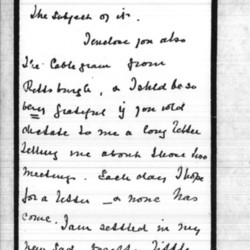 the subject of it.
I enclose you also
the Cablegram from
Pittsburgh, & I shld be so
very grateful if you wld
dictate to me a long letter
telling me about those two
meetings. Each day I hope
for a letter – & none has
come. I am settled in my
new sad little